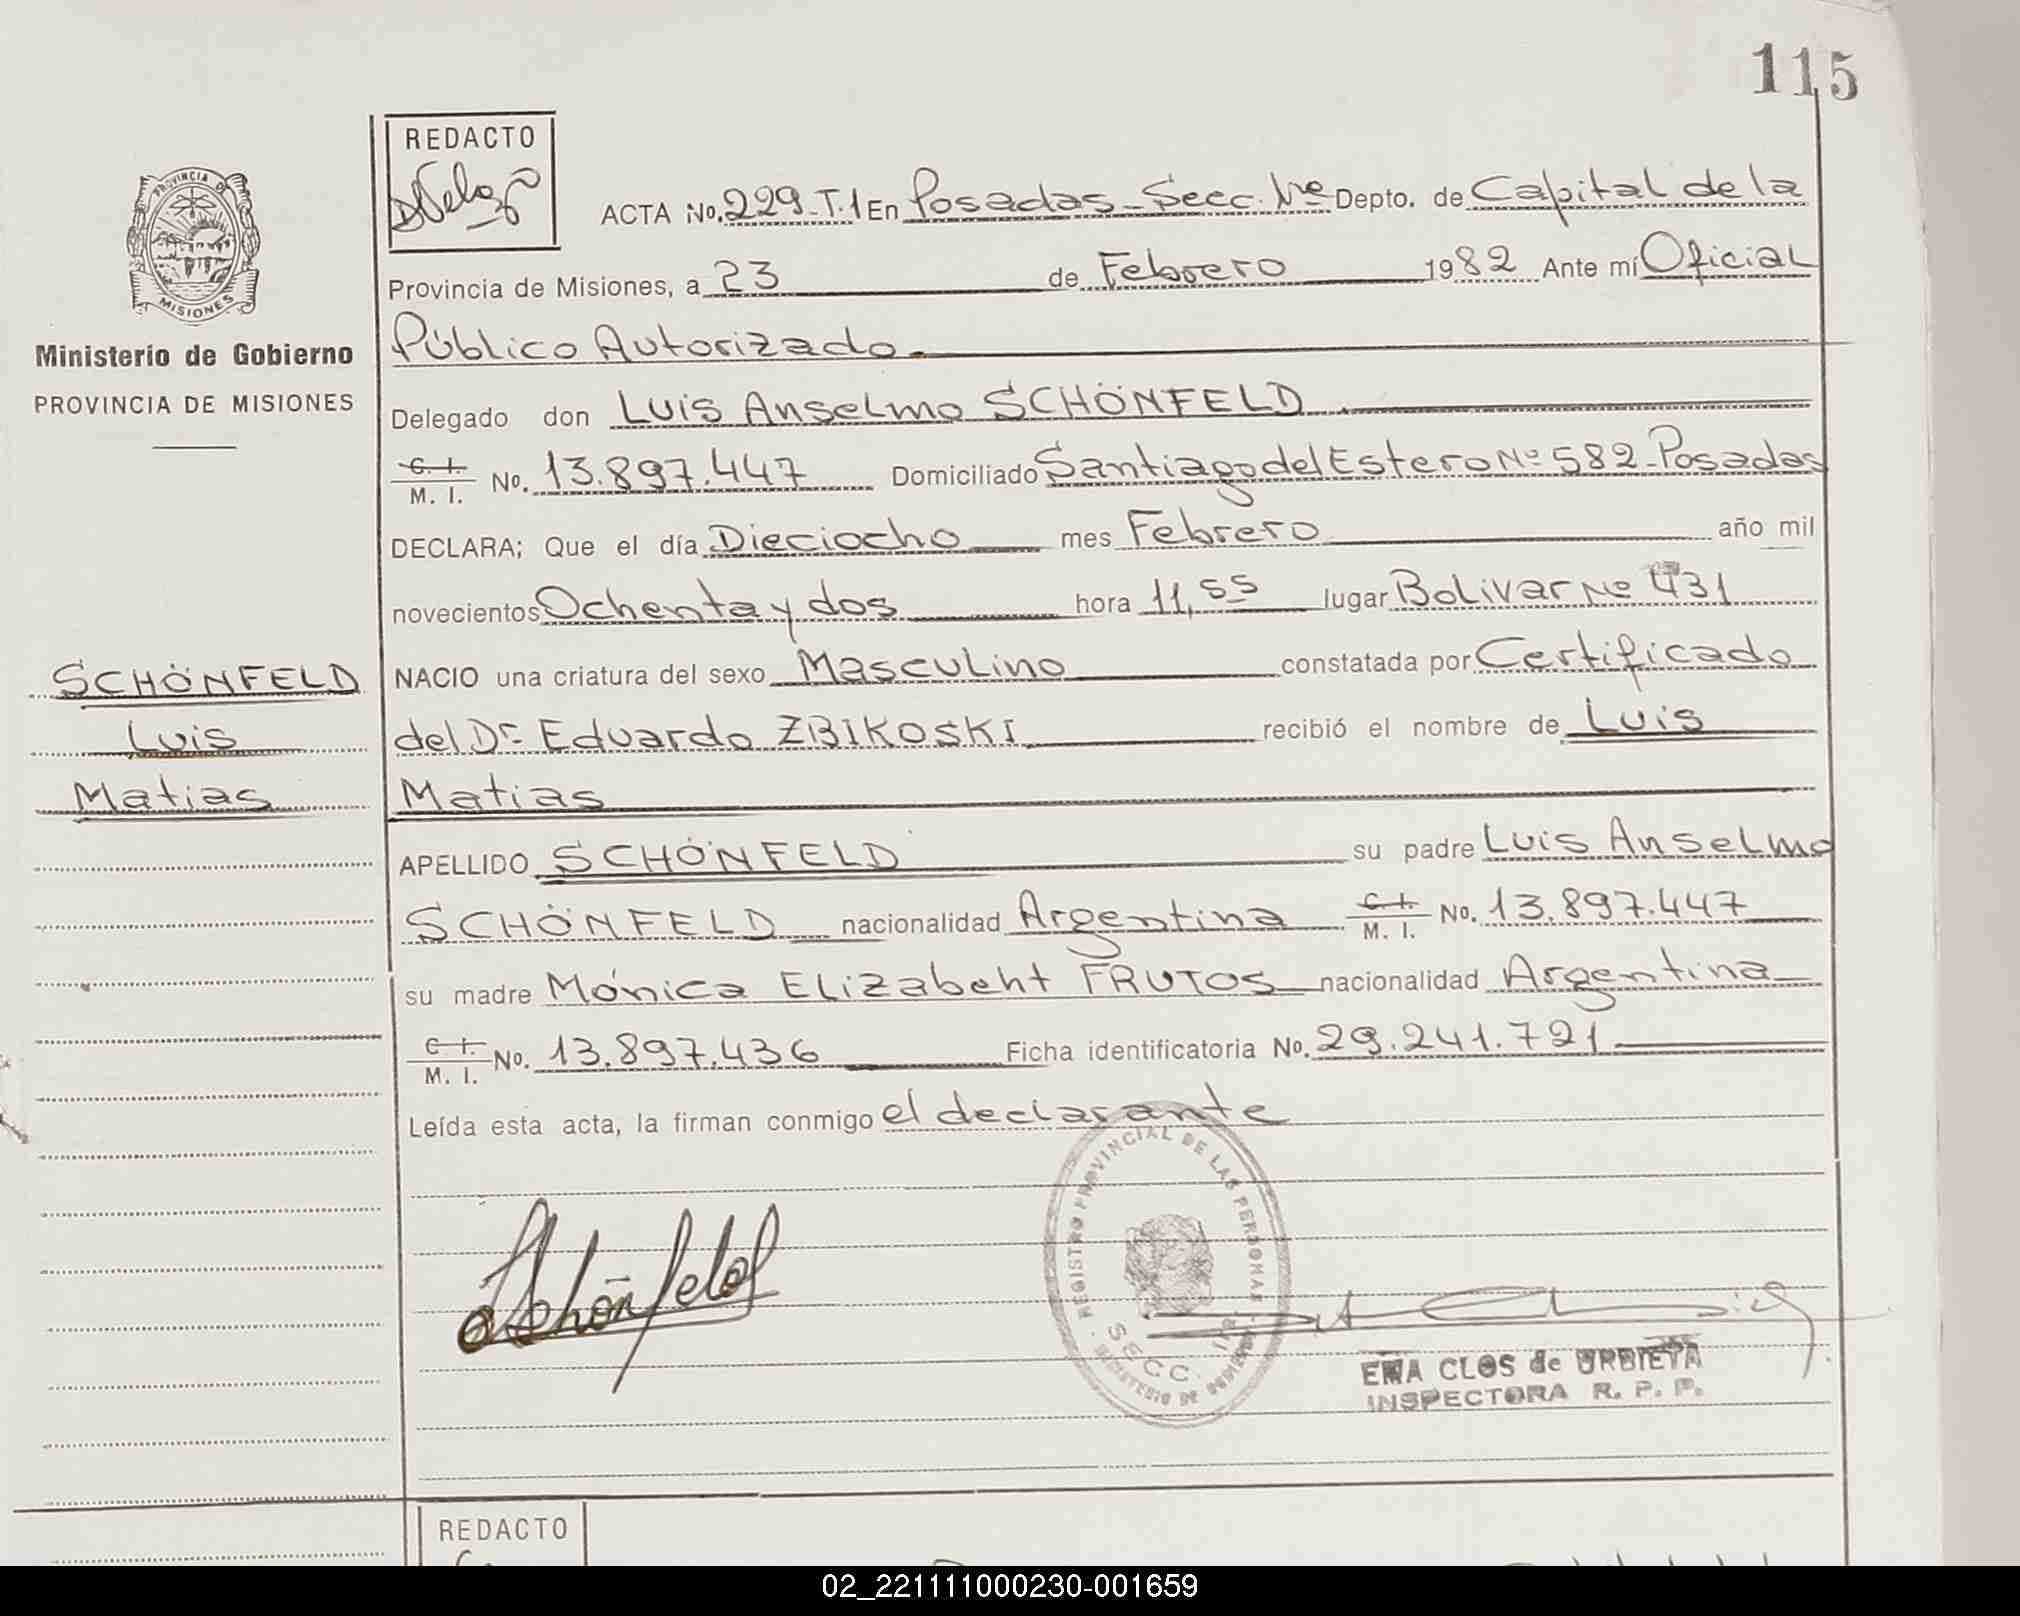 115
REDACTO
PROVINCIA DE
MISIONES
ACTA No. 229-T.1 En Posadas - Secc. Depto. de Capital de la
Provincia de Misiones, a 23 de Febrero 1982 Ante mí Oficial
Ministerio de Gobierno
Público Autorizado.
PROVINCIA DE MISIONES
Delegado don Luis Anselmo SCHÖNFELD
C. I. M. I. No. 13.897.447 Domiciliado Santiago del Estero Nº 582-Posadas
DECLARA; Que el día Dieciocho mes Febrero año mil
novecientos Ochenta y dos hora 11,55 lugar Bolivar Nº 431
SCHÖNFELD
NACIO una criatura del sexo Masculino constatada por Certificado
Luis
del Dr. Eduardo ZBIKOSKI recibió el nombre de Luis
Matias
Matias
APELLIDO SCHÖNFELD su padre Luis Anselmo
SCHÖNFELD nacionalidad Argentina C. I. M. I. No. 13.897.447
su madre Mónica Elizabeht FRUTOS nacionalidad Argentina
C. I. M. I. No. 13.897.436 Ficha identificatoria No. 29.241.721
Leída esta acta, la firman conmigo el declarante
REGISTRO PROVINCIAL DE LAS PERSONAS
SECC.
MINISTERIO DE GOBIERNO
Schönfeld
EMA CLOS de URBIETA
INSPECTORA R. P. P.
REDACTO
02_221111000230-001659